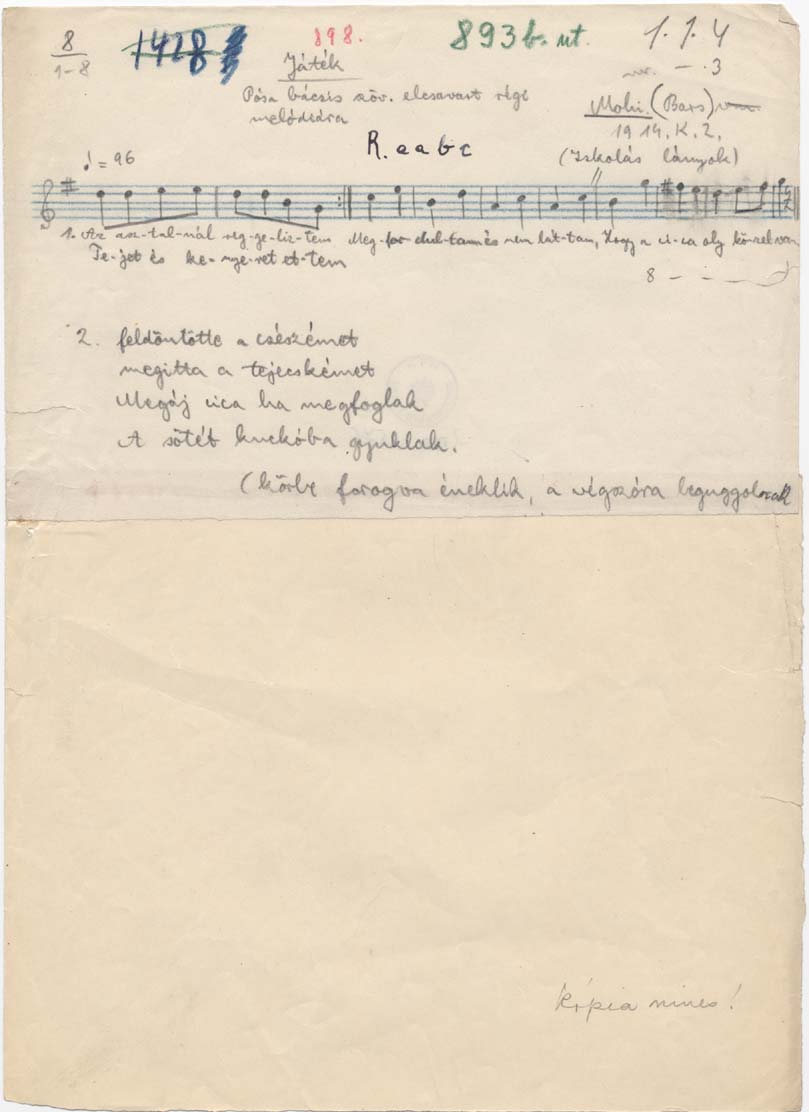 8
1-8
1428
898.
893 b. ut.
1. 1. 4
3
Játék
Pósa bácsis szöv. elcsavart régi
melódiára
Mohi. (Bars)
1914. K. Z.
R. a a b c
(Iskolás lányok)
♩ = 96
1. Az asz-tal-nál reg-ge-liz-tem Meg-for dul-tam és nem lát-tam, Hogy a ci-ca oly kö-zel van.
Te-jet és ke-nye-ret et-tem
8
2. feldöntötte a csészémet
megitta a tejecskémet
Megáj cica ha megfoglak
A sötét kuckóba gyuklak.
(körbe forogva éneklik, a végszóra leguggolnak
kópia nincs!